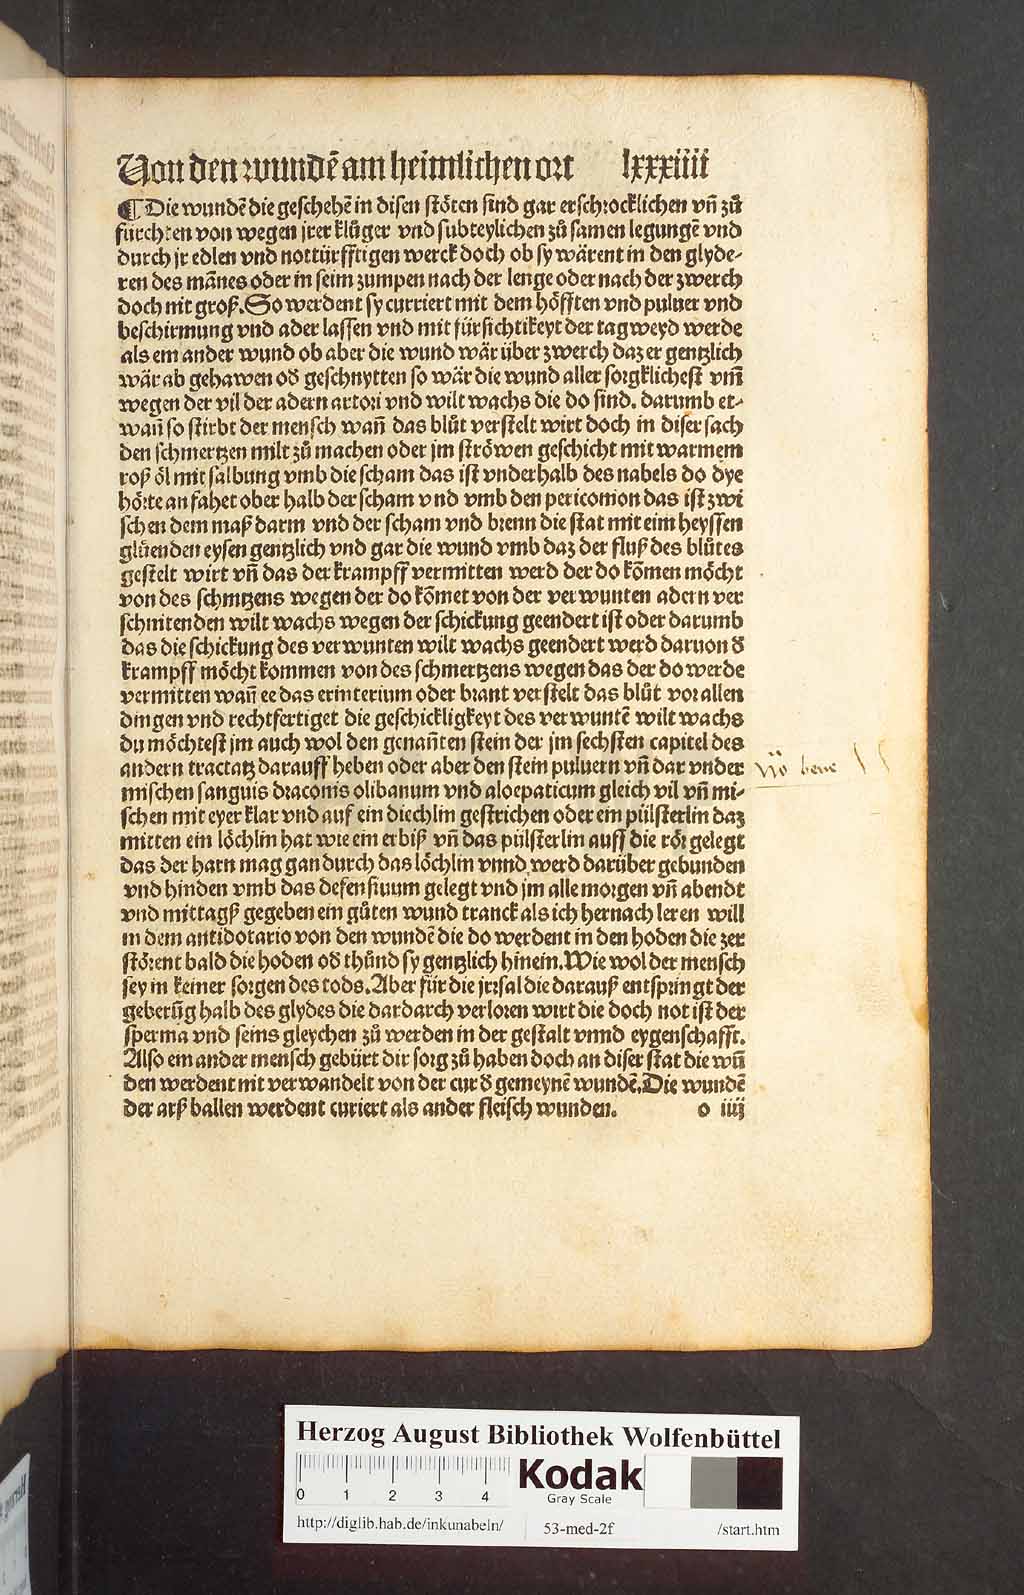 Von den wundē am heimlichen ort lxxxiiii
¶ Die wundē die geschehē in disen stöten sind gar erschrocklichen vñ zů
fürchten von wegen jrer klůger vnd subteylichen zů samen legungē vnd
durch jr edlen vnd nottürfftigen werck doch ob sy wärent in den glyde-
ren des mānes oder in seim zumpen nach der lenge oder nach der zwerch
doch nit groß. So werdent sy curriert mit dem höfften vnd puluer vnd
beschirmung vnd ader lassen vnd mit fürsichtikeyt der tagweyd werde
als ein ander wund ob aber die wund wär über zwerch daz er gentzlich
wär ab gehawen oď geschnytten so wär die wund aller sorgklichest vm̄
wegen der vil der adern artori vnd wilt wachs die do sind. darumb et-
wañ so stirbt der mensch wañ das blůt verstelt wirt doch in diser sach
den schmertzen milt zů machen oder jm ströwen geschicht mit warmem
roß öl mit salbung vmb die scham das ist vnderhalb des nabels do dye
hörte an fahet ober halb der scham vnd vmb den periconion das ist zwi
schen dem maß darm vnd der scham vnd brenn die stat mit eim heyssen
glůenden eysen gentzlich vnd gar die wund vmb daz der fluß des blůtes
gestelt wirt vñ das der krampff vermitten werd der do kōmen möcht
von des schmtzens wegen der do kōmet von der verwunten adern ver
schnitenden wilt wachs wegen der schickung geendert ist oder darumb
das die schickung des verwunten wilt wachs geendert werd daruon ď
krampff möcht kommen von des schmertzens wegen das der do werde
vermitten wañ ee das erinterium oder brant verstelt das blůt vor allen
dingen vnd rechtfertiget die geschickligkeyt des verwuntē wilt wachs
du möchtest jm auch wol den genañten stein der jm sechsten capitel des
andern tractatz darauff heben oder aber den stein puluern vñ dar vnder
mischen sanguis draconis olibanum vnd aloepaticum gleich vil vñ mi-
schen mit eyer klar vnd auf ein diechlin gestrichen oder ein pülsterlin daz
mitten ein löchlin hat wie ein erbiß vñ das pülsterlin auff die rör gelegt
das der harn mag gan durch das löchlin vnnd werd darüber gebunden
vnd hinden vmb das defensiuum gelegt vnd jm alle morgen vñ abendt
vnd mittagß gegeben ein gůten wund tranck als ich hernach leren will
in dem antidotario von den wundē die do werdent in den hoden die zer
störent bald die hoden oď thůnd sy gentzlich hinein. Wie wol der mensch
sey in keiner sorgen des tods. Aber für die jrrsal die darauß entspringt der
geberūg halb des glydes die dardarch verloren wirt die doch not ist der
sperma vnd seins gleychen zů werden in der gestalt vnnd eygenschafft.
Also ein ander mensch gebürt dir sorg zů haben doch an diser stat die wū
den werdent nit verwandelt von der cur ď gemeynē wundē. Die wundē
der arß ballen werdent curiert als ander fleisch wunden. o iiij
bene
Herzog August Bibliothek Wolfenbüttel
0 1 2 3 4
Kodak
Gray Scale
http://diglib.hab.de/inkunabeln/ 53-med-2f /start.htm